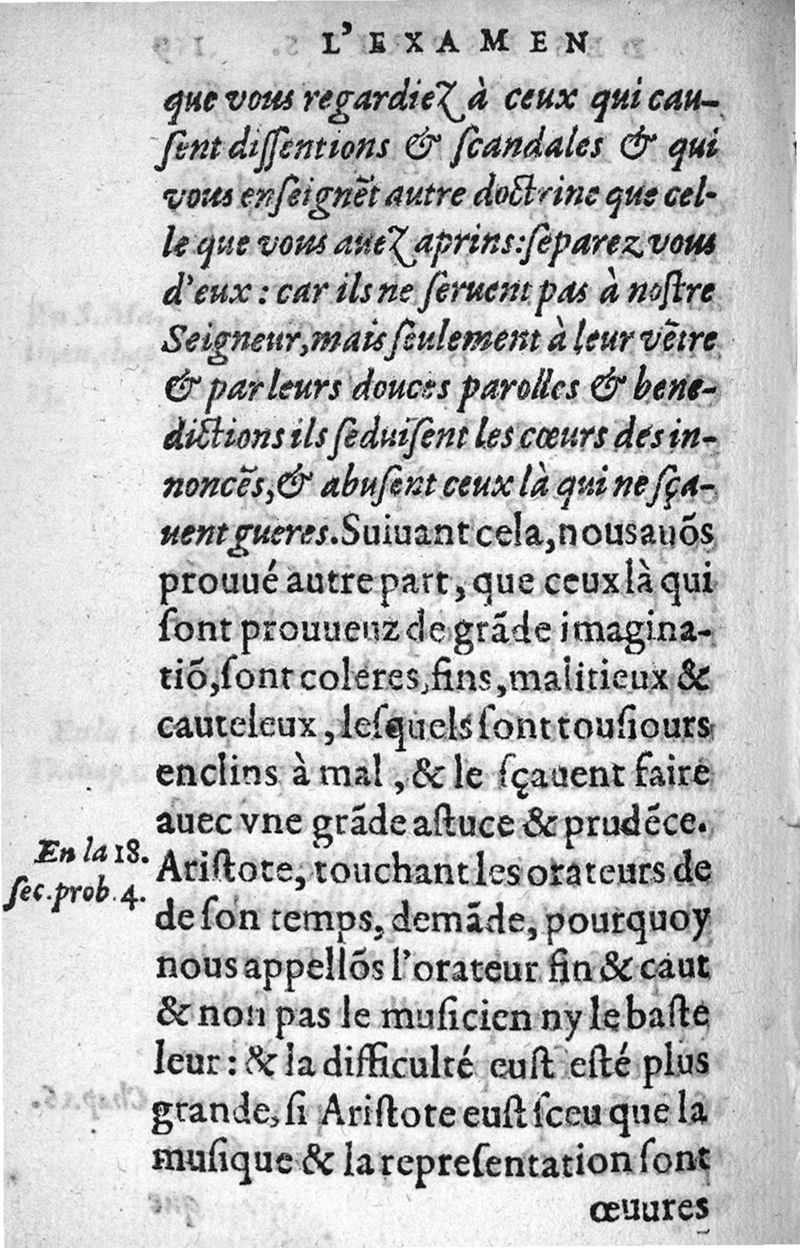 L'EXAMEN
que vous regardiez à ceux qui cau-
ſent diſſentions & ſcandales & qui
vous enſeignẽt autre doctrine que cel-
le que vous auez aprins:ſeparez vous
d'eux : car ils ne ſeruent pas à noſtre
Seigneur,mais ſeulement à leur vẽtre
& par leurs douces parolles & bene-
dictions ils ſeduiſent les cœurs des in-
noncẽs,& abuſent ceux là qui ne ſça-
uent gueres.Suiuant cela,nous auõs
prouué autre part, que ceux là qui
ſont prouueuz de grãde imagina-
tiõ,ſont coleres,fins,malitieux &
cauteleux,leſquels ſont touſiours
enclins à mal, & le ſçauent faire
auec vne grãde aſtuce & prudẽce.
En la 18.
ſec.prob.4.
Ariſtote, touchant les orateurs de
de ſon temps, demãde, pourquoy
nous appellõs l'orateur fin & caut
& non pas le muſicien ny le baſte
leur : & la difficulté euſt eſté plus
grande, ſi Ariſtote euſt ſceu que la
muſique & la repreſentation ſont
œuures